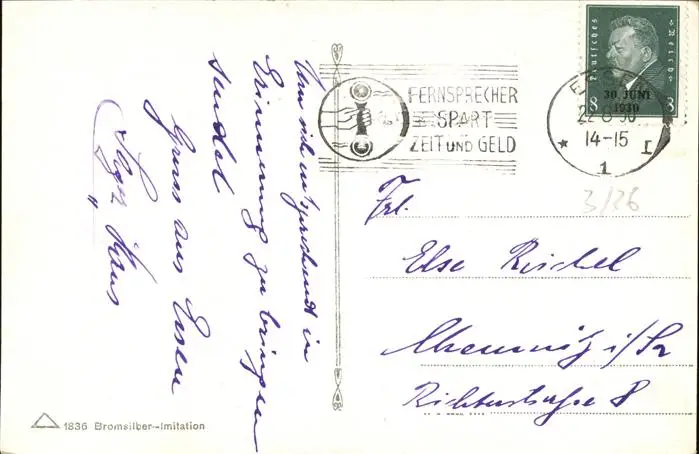 Um sich entsprechend in
Erinnerung zu bringen
sendet
Gruss aus Essen
FERNSPRECHER
SPART
ZEIT UND GELD
Deutsches Reich
8 8
30. JUNI
1930
ESSEN
22.8.30
14-15
* 1 I
3/26
Frl.
Else Reichel
Chemnitz i/Sa
Richterstraße 8
1836 Bromsilber-Imitation